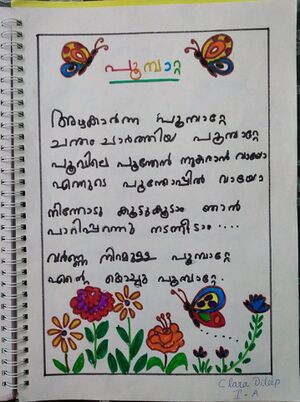 പൂമ്പാറ്റ
അഴകാർന്ന പൂമ്പാറ്റേ
ചന്തം ചാർത്തിയ പൂമ്പാറ്റേ
പൂവിലെ പൂന്തേൻ നുകരാൻ വായോ
എന്നുടെ പൂന്തോപ്പിൽ വായോ
നിന്നോടു കൂട്ടുകൂടാം ഞാൻ
പാറിപ്പറന്നു നടന്നീടാം ....
വർണ്ണ നിറമുള്ള പൂമ്പാറ്റേ
എന്റെ കൊച്ചു പൂമ്പാറ്റേ.
Clara Dileep
I - A